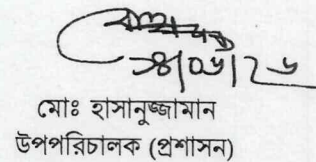 ২৪|০৬|২৬
মোঃ হাসানুজ্জামান
উপপরিচালক (প্রশাসন)